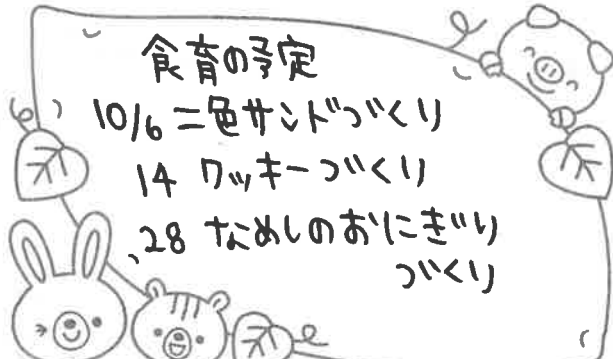 食育の予定
10/6 二色サンドづくり
14 クッキーづくり
28 なめしのおにぎり
づくり